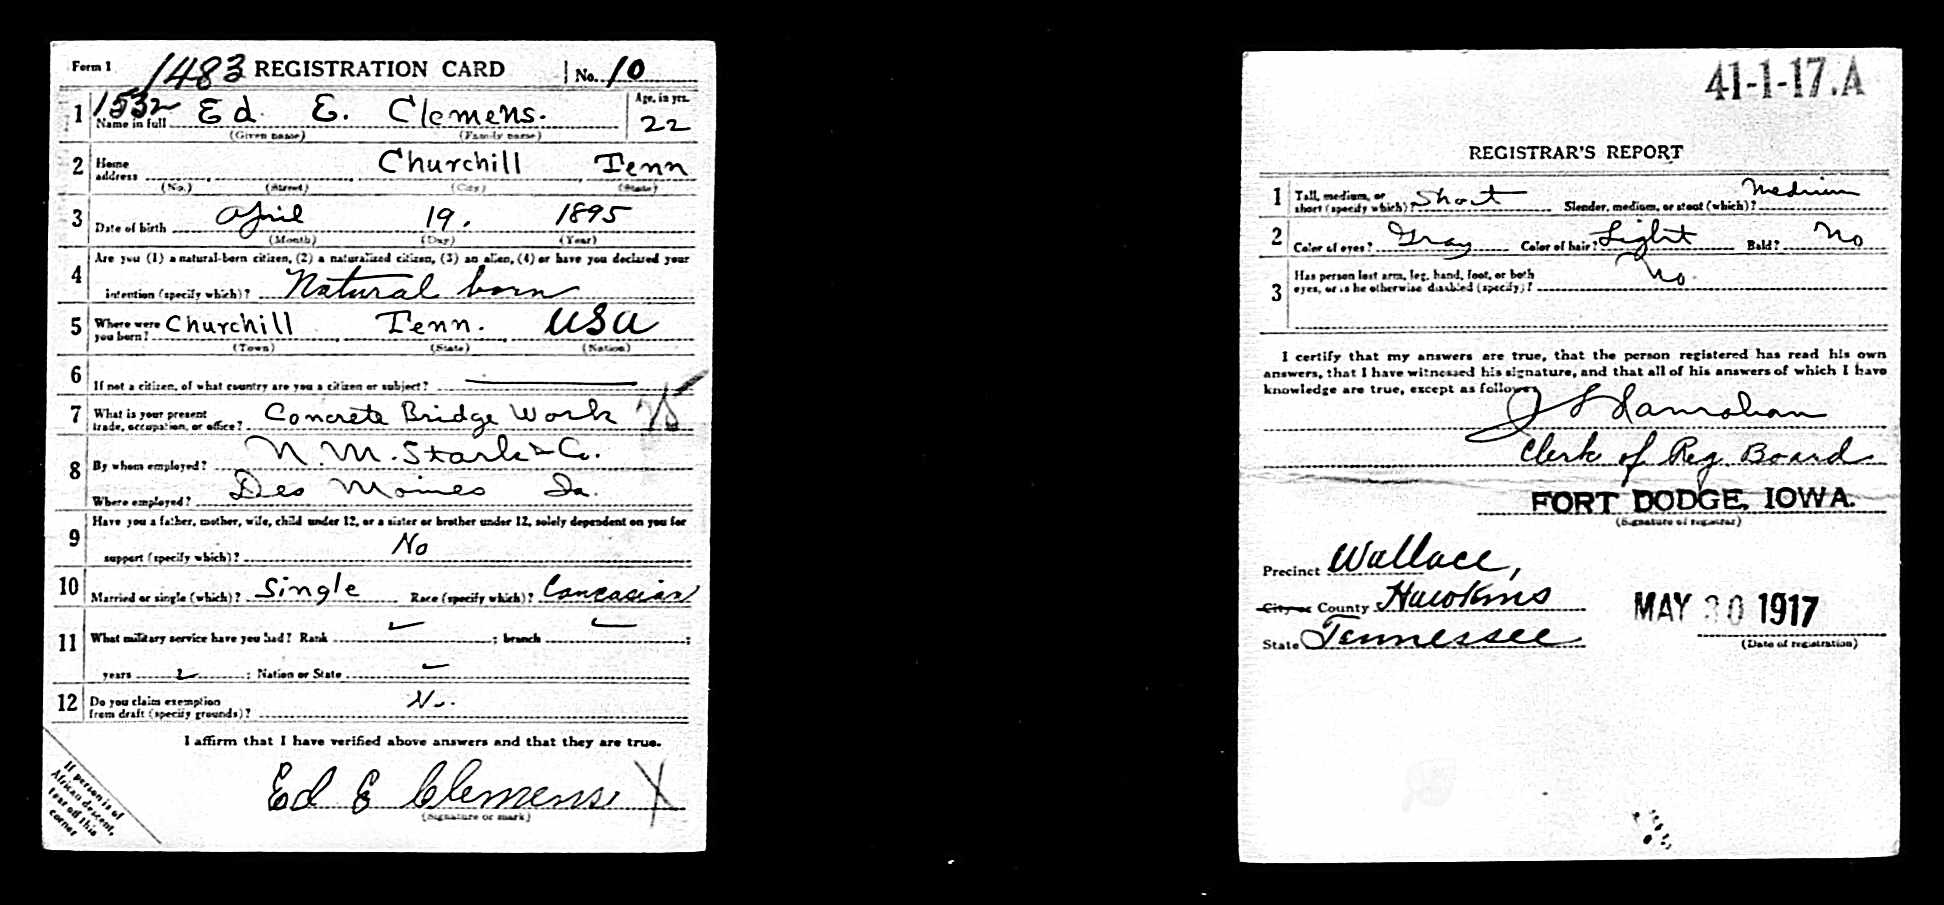 Form 1 1483 REGISTRATION CARD No. 10
1 1532 Name in full Ed E. Clemens. Age, in yrs. 22
(Given name) (Family name)
2 Home address Churchill Tenn
(No.) (Street) (City) (State)
3 Date of birth April 19, 1895
(Month) (Day) (Year)
4 Are you (1) a natural-born citizen, (2) a naturalized citizen, (3) an alien, (4) or have you declared your
intention (specify which)? Natural born
5 Where were you born? Churchill Tenn. USA
(Town) (State) (Nation)
6 If not a citizen, of what country are you a citizen or subject?
7 What is your present
trade, occupation, or office? Concrete Bridge Work
8 By whom employed? N. M. Stark & Co.
Where employed? Des Moines Ia.
9 Have you a father, mother, wife, child under 12, or a sister or brother under 12, solely dependent on you for
support (specify which)? No
10 Married or single (which)? Single Race (specify which)? Caucasian
11 What military service have you had? Rank ; branch ;
years ; Nation or State
12 Do you claim exemption
from draft (specify grounds)? No.
I affirm that I have verified above answers and that they are true.
Ed E Clemens X
(Signature or mark)
If person is of
African descent,
tear off this
corner
41-1-17.A
REGISTRAR'S REPORT
1 Tall, medium, or
short (specify which)? Short Slender, medium, or stout (which)? Medium
2 Color of eyes? Gray Color of hair? Light Bald? No
3 Has person lost arm, leg, hand, foot, or both
eyes, or is he otherwise disabled (specify)? No.
I certify that my answers are true, that the person registered has read his own
answers, that I have witnessed his signature, and that all of his answers of which I have
knowledge are true, except as follows:
Clerk of Reg. Board
FORT DODGE, IOWA.
(Signature of registrar)
Precinct Wallace,
City or County Hawkins
State Tennessee
MAY 30 1917
(Date of registration)